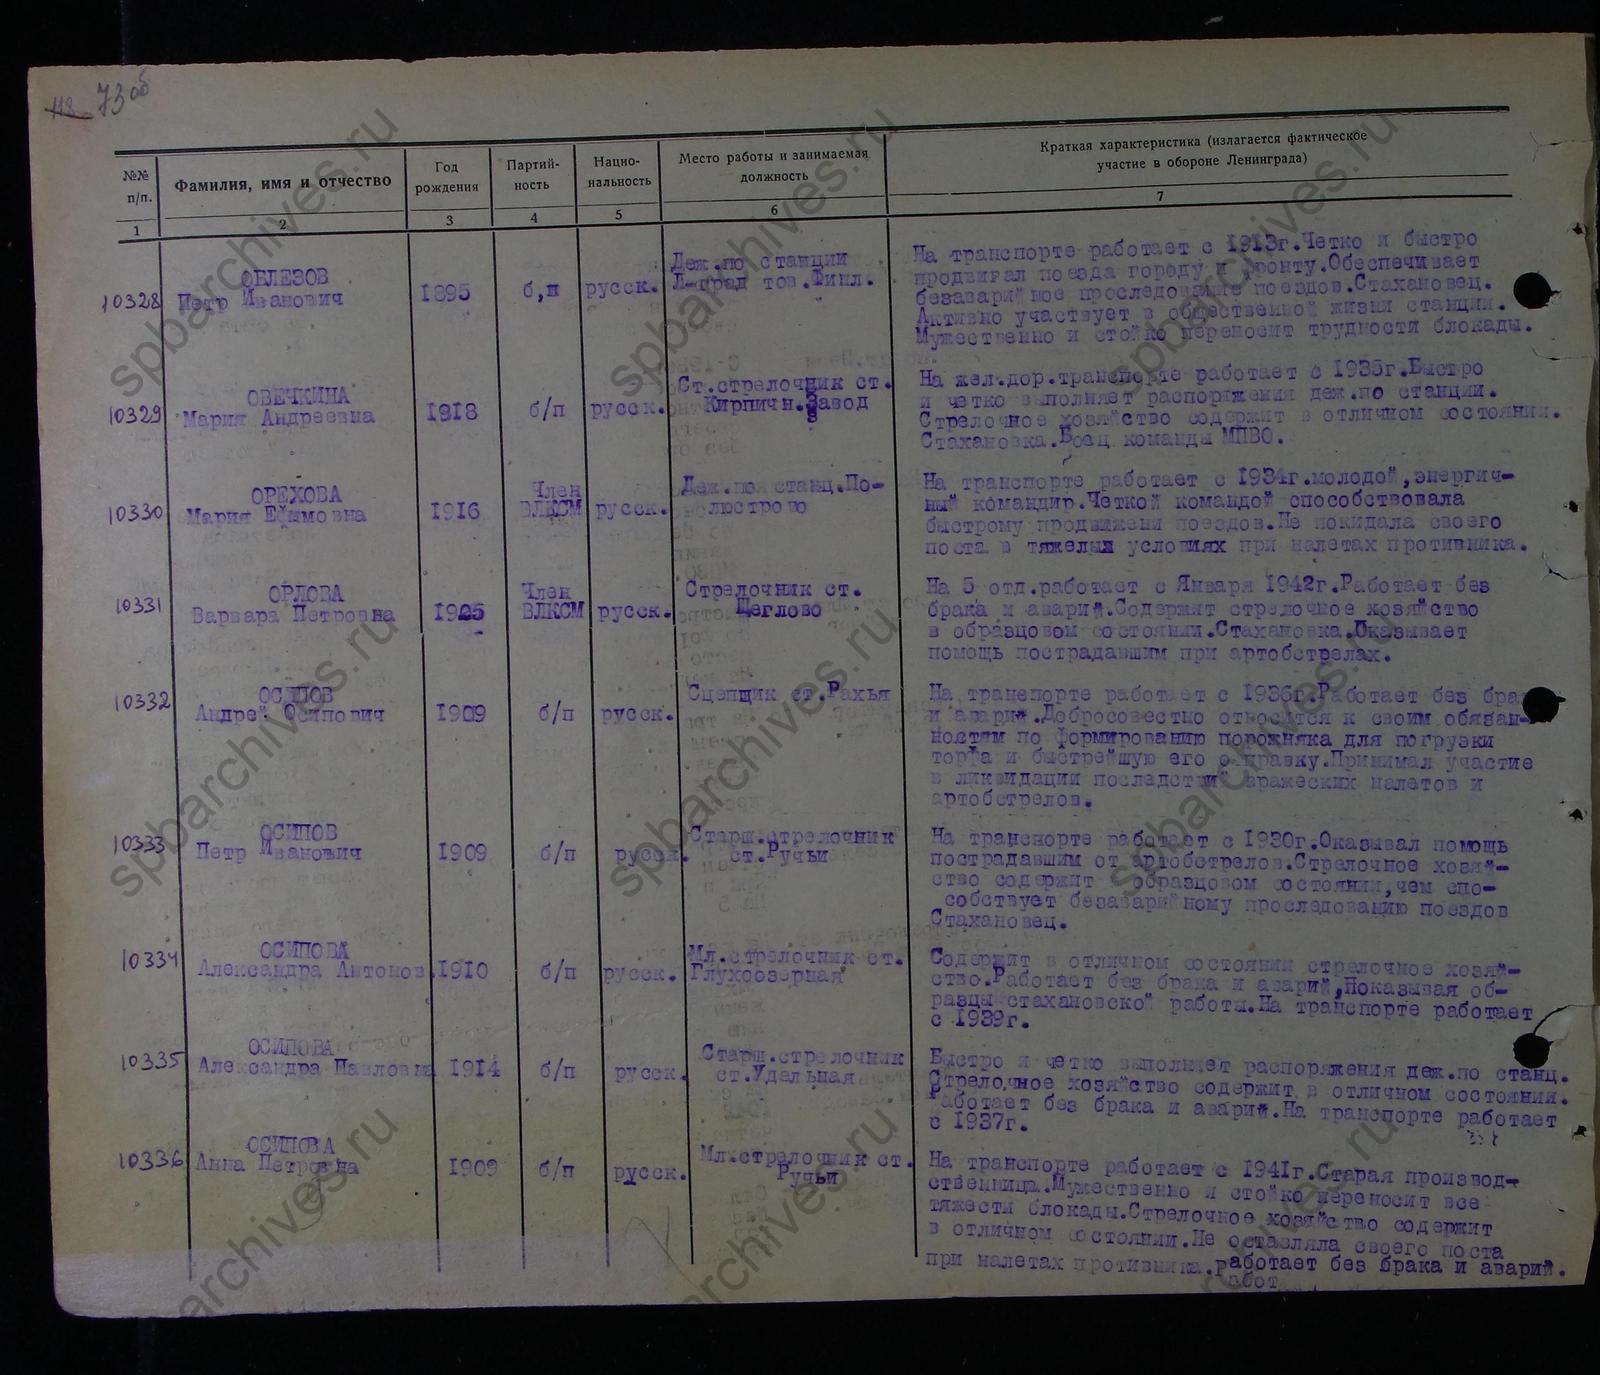 118 73об
№№ п/п. Фамилия, имя и отчество Год рождения Партий-ность Нацио-нальность Место работы и занимаемая должность Краткая характеристика (излагается фактическое участие в обороне Ленинграда)
1 2 3 4 5 6 7
10328 ОБЛЕЗОВ
Петр Иванович 1895 б,п русск. Деж.по станции
Л-град тов.Финл.
На транспорте работает с 1913г.Четко и быстро
продвигал поезда городу и фронту.Обеспечивает
безаварийное проследование поездов.Стахановец.
Активно участвует в общественной жизни станции.
Мужественно и стойко переносит трудности блокады.
10329 ОВЕЧКИНА
Мария Андреевна 1918 б/п русск. Ст.стрелочник ст.
Кирпичн.Завод
На жел.дор.транспорте работает с 1935г.Быстро
и четко выполняет распоряжения деж.по станции.
Стрелочное хозяйство содержит в отличном состоянии.
Стахановка.Боец команды МПВО.
10330 ОРЕХОВА
Мария Ефимовна 1916 Член
ВЛКСМ русск. Деж.по станц.По-
люстрово
На транспорте работает с 1934г.молодой,энергич-
ный командир.Четкой командой способствовала
быстрому продвижени поездов.Не покидала своего
поста в тяжелых условиях при налетах противника.
10331 ОРЛОВА
Варвара Петровна 1925 Член
ВЛКСМ русск. Стрелочник ст.
Щеглово
На 5 отд.работает с Января 1942г.Работает без
брака и аварий.Содержит стрелочное хозяйство
в образцовом состоянии.Стахановка.Оказывает
помощь пострадавшим при артобстрелах.
10332 ОСИПОВ
Андрей Осипович 1909 б/п русск. Сцепщик ст.Рахья
На транспорте работает с 1936г.Работает без бра
и аварий.Добросовестно относится к своим обязан-
ностям по формированию порожняка для погрузки
торфа и быстрейшую его отправку.Принимал участие
в ликвидации последствий вражеских налетов и
артобстрелов.
10333 ОСИПОВ
Петр Иванович 1909 б/п русск. Старш.стрелочник
ст.Ручьи
На транспорте работает с 1930г.Оказывал помощь
пострадавшим от артобстрелов.Стрелочное хозяй-
ство содержит в образцовом состоянии,чем спо-
собствует безаварийному проследованию поездов
Стахановец.
10334 ОСИПОВА
Александра Антонов. 1910 б/п русск. Мл.стрелочник ст.
Глухоозерная
Содержит в отличном состоянии стрелочное хозяй-
ство.Работает без брака и аварий,Показывая об-
разцы стахановской работы.На транспорте работает
с 1939г.
10335 ОСИПОВА
Александра Павловна 1914 б/п русск. Старш.стрелочник
ст.Удельная
Быстро и четко выполняет распоряжения деж.по станц.
Стрелочное хозяйство содержит в отличном состоянии.
Работает без брака и аварий.На транспорте работает
с 1937г.
10336 ОСИПОВА
Анна Петровна 1909 б/п русск. Мл.стрелочник ст.
Ручьи
На транспорте работает с 1941г.Старая производ-
ственница.Мужественно и стойко переносит все
тяжести блокады.Стрелочное хозяйство содержит
в отличном состоянии.Не оставляла своего поста
при налетах противника.Работает без брака и аварий.
абот
spbarchives.ru